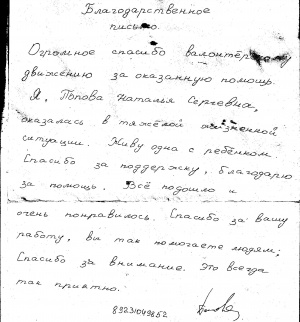 Благодарственное
письмо.
Огромное спасибо валонтёрскому
движению за оказанную помощь.
Я, Попова Наталья Сергеевна,
оказалась в тяжёлой жизненной
ситуации. Живу одна с ребёнком.
Спасибо за поддержку, благодарю
за помощь. Всё подошло и
очень понравилось. Спасибо за вашу
работу, вы так помогаете людям,
Спасибо за внимание. Это всегда
так приятно.
89231049852